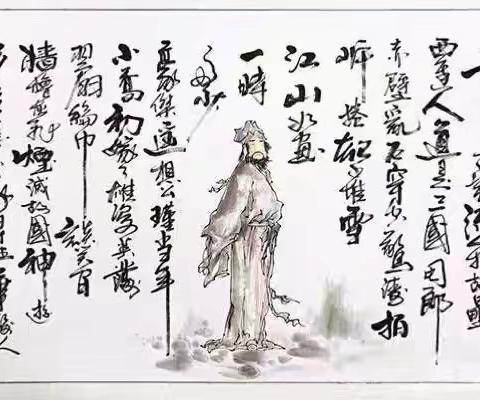 故壘
西邊人道是三國周郎
赤壁亂石穿空驚濤拍
岸捲起千堆雪
江山如畫
一時
多少
豪傑遙想公瑾當年
小喬初嫁了雄姿英發
羽扇綸巾
談笑間
檣櫓灰飛煙滅故國神遊
早生華髮人